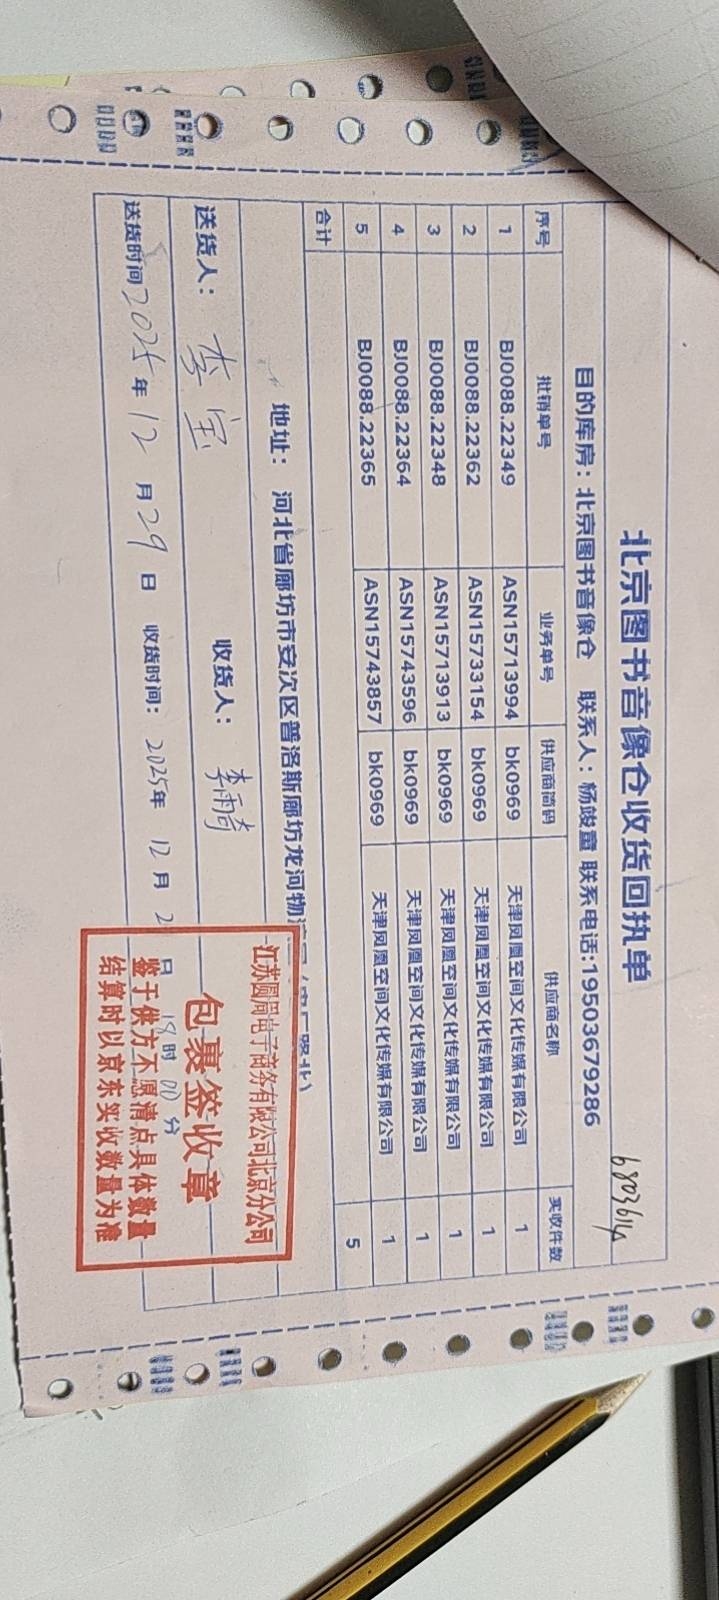 北京图书音像仓收货回执单
6803614
目的库房：北京图书音像仓 联系人：杨竣童 联系电话:19503679286
序号 批销单号 业务单号 供应商简码 供应商名称 实收件数
1 BJ0088.22349 ASN15713994 bk0969 天津凤凰空间文化传媒有限公司 1
2 BJ0088.22362 ASN15733154 bk0969 天津凤凰空间文化传媒有限公司 1
3 BJ0088.22348 ASN15713913 bk0969 天津凤凰空间文化传媒有限公司 1
4 BJ0088.22364 ASN15743596 bk0969 天津凤凰空间文化传媒有限公司 1
5 BJ0088.22365 ASN15743857 bk0969 天津凤凰空间文化传媒有限公司 1
合计 5
地址： 河北省廊坊市安次区普洛斯廊坊龙河物
送货人： 李宝 收货人： 李雨奇
送货时间 2025年 12月 29日 收货时间： 2025年 12月 2 日 18时 00分
江苏圆周电子商务有限公司北京分公司
包裹签收章
鉴于供方不愿清点具体数量
结算时以京东实收数量为准